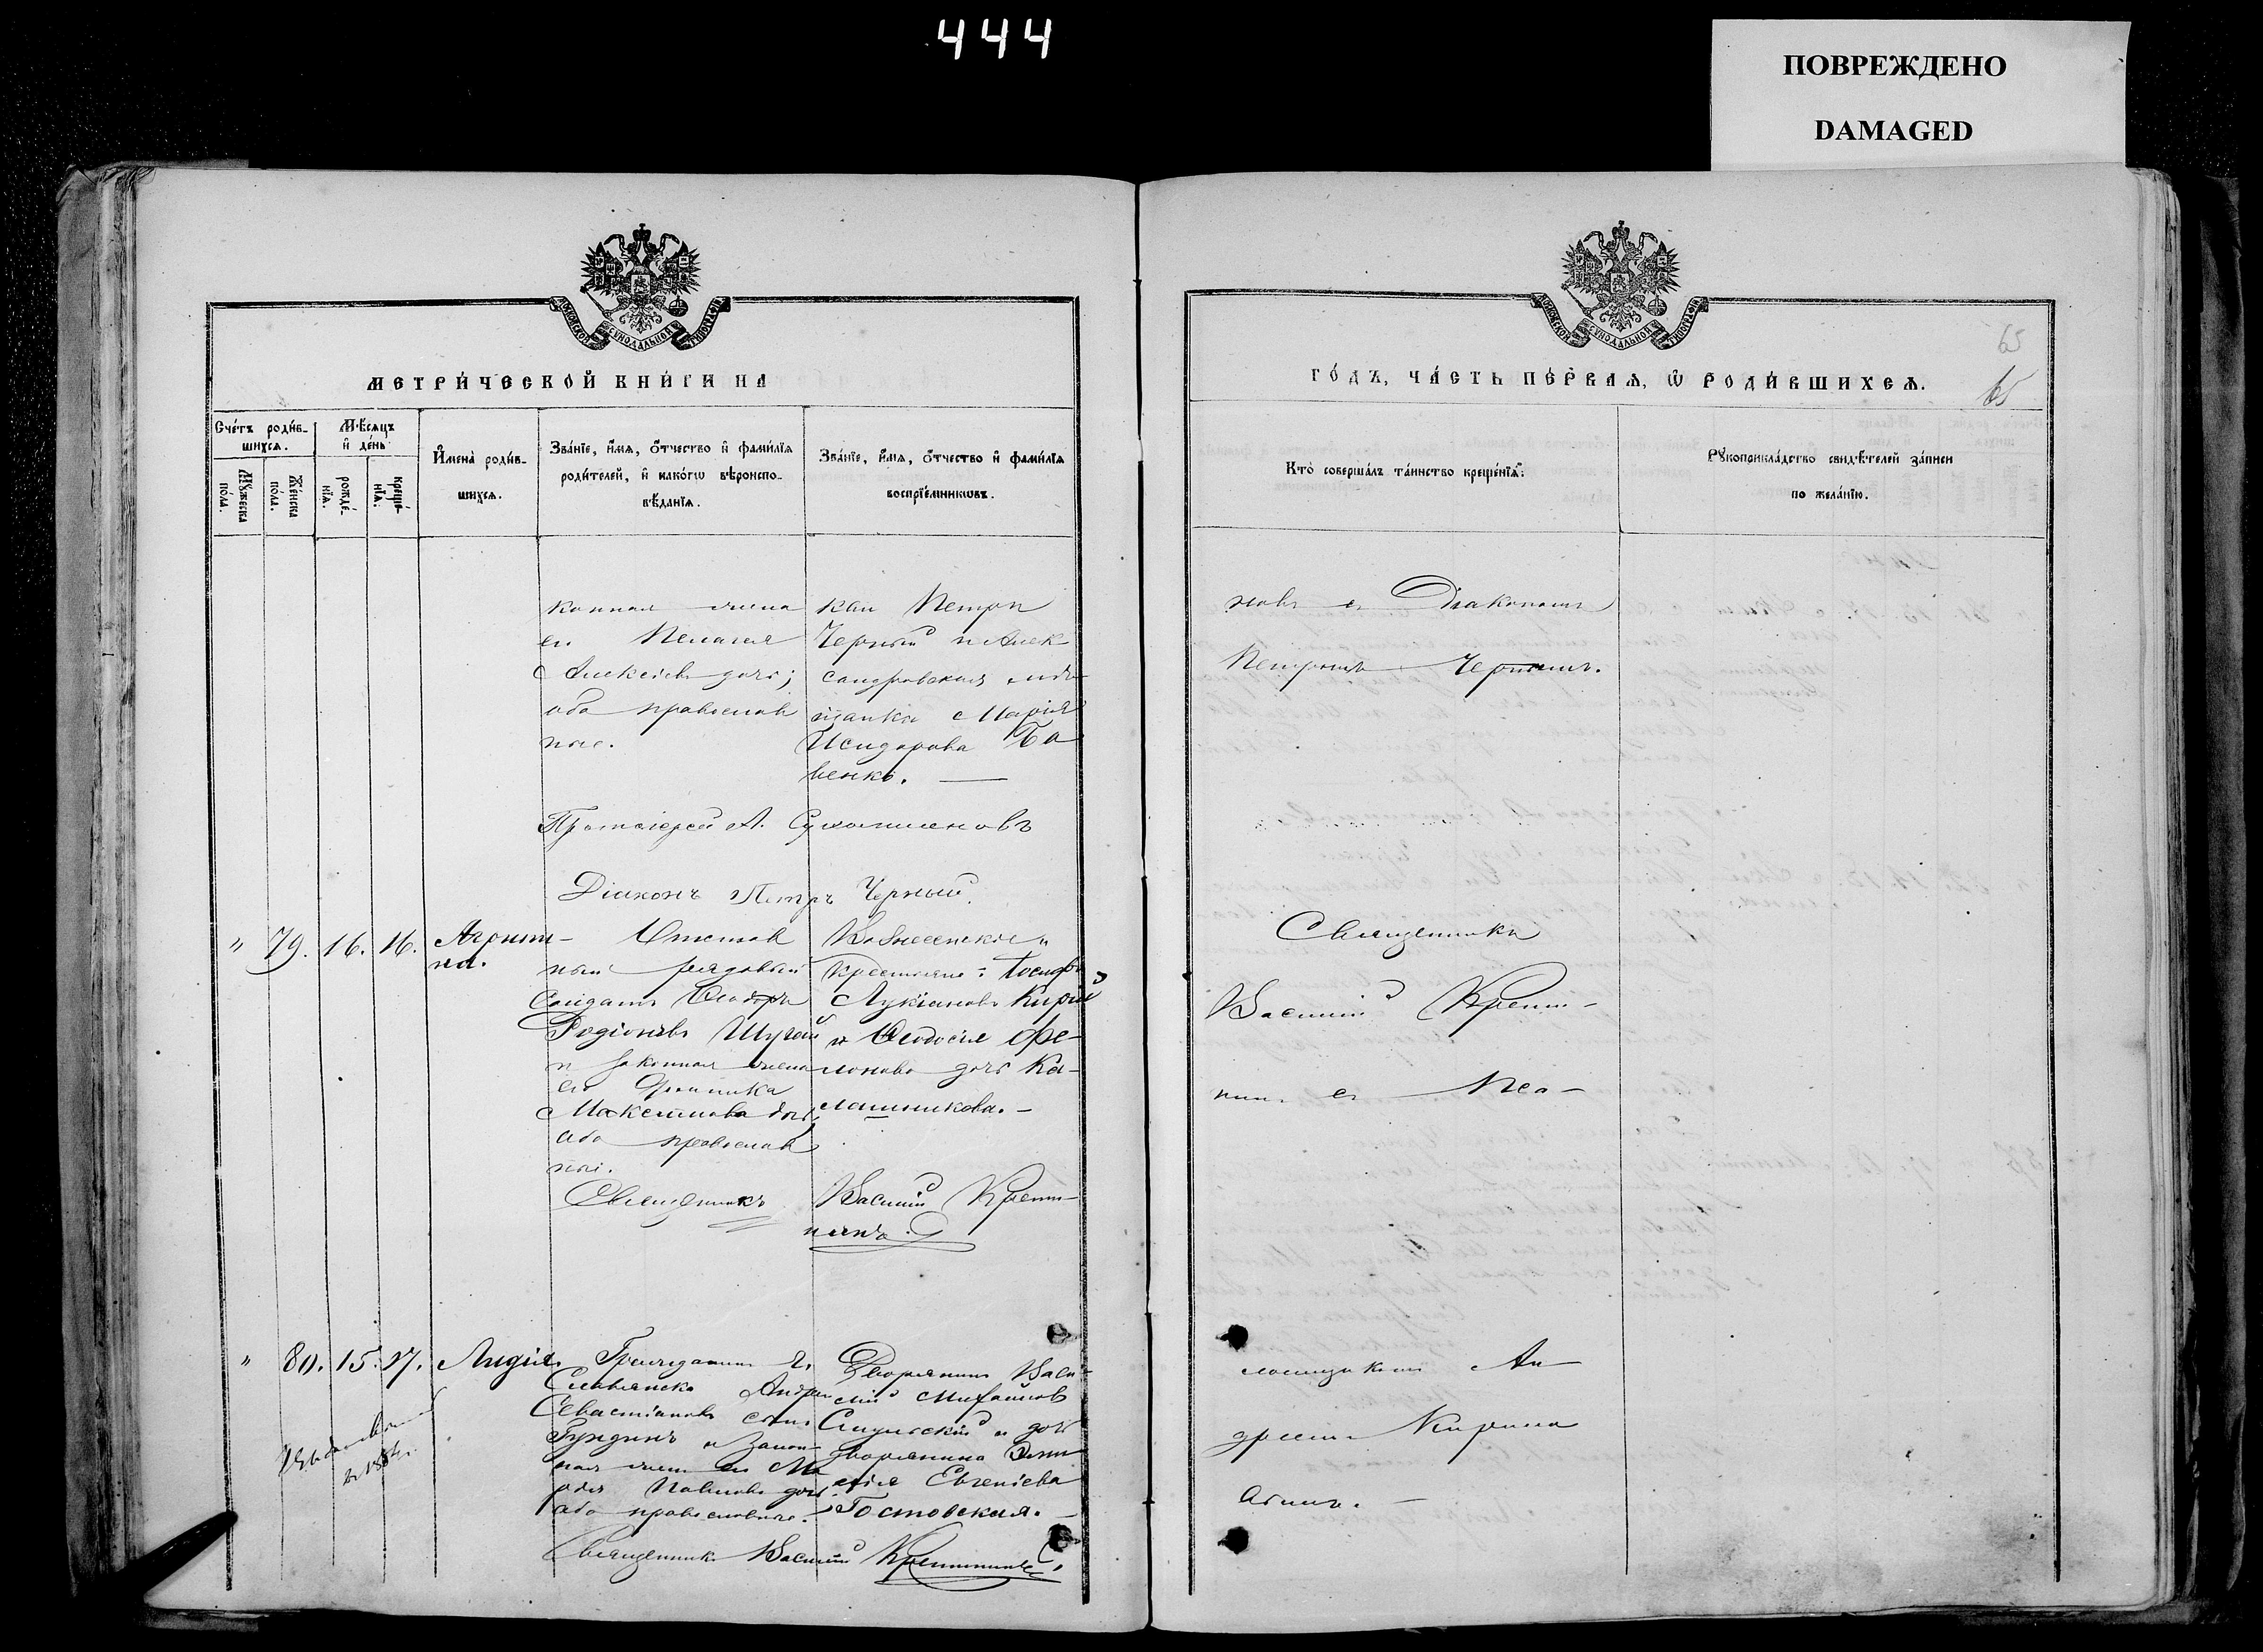 444
ПОВРЕЖДЕНО
DAMAGED
МЕТРИ́ЧЕСКОЙ КНИ́ГИ НА
Сче́тъ роди́в-
шихсѧ.
Мѣ́сѧцъ
и҆ де́нь
Мꙋ́жеска по́ла.
Же́нска по́ла.
рожде́-
нїѧ.
креще́-
нїѧ.
И҆мена̀ роди́в-
шихсѧ.
Зва́нїе, и҆́мѧ, ѻ҆́тчество и҆ фами́лїѧ
роди́телей, и҆ како́гѡ вѣроиспо-
вѣ́данїѧ.
Зва́нїе, и҆́мѧ, ѻ҆́тчество и҆ фами́лїѧ
воспрїе́мникѡвъ.
конная жена
ея Пелагея
Алексѣева дочь;
оба православ
ные.
ками Петръ
Черный и Алек
сандровская мѣ-
щанка Марія
Исидорова Ба
венко.
Протоіерей А. Сухомлиновъ
Діаконъ Петръ Черный.
" 79. 16. 16. Агрипи-
на.
Отстав
ный рядовый
Солдатъ Ѳеодоръ
Родіоновъ Шугай
и законная жена
его
Максимова дочь,
оба православ
ные.
Вознесенскіе
крестьяне: Іосифъ
Лукіановъ Кирій
и Ѳеодосія Фи-
монова дочь Ка-
лашникова.-
Священникъ Василій Крети-
нинъ.
" 80. 15. 17. Лидія
Гражданинъ г.
Славянска Андрей
Севастіановъ сынъ
Гундинъ и закон-
ная жена его Ма
рія Павлова дочь
оба православные.
Дворянинъ Васи-
лій Михайловъ
и дочь
дворянина
Евгеніева
Гостовская.
Священникъ Василій Кретининъ
г. 1884 г.
ГО́ДЪ, ЧА́СТЬ ПЕ́РВАѦ, Ѡ҆ РОДИ́ВШИХСѦ.
65
65
Кто̀ соверша́лъ та́инство креще́нїѧ.
Рꙋкоприкла́дство свидѣ́телей за́писи
по жела́нїю.
новъ съ Діакономъ
Петромъ Чернымъ.
Священникъ
Василій Крети-
нинъ съ Пса-
ломщикомъ Ан-
дреемъ Кирилло
вымъ.